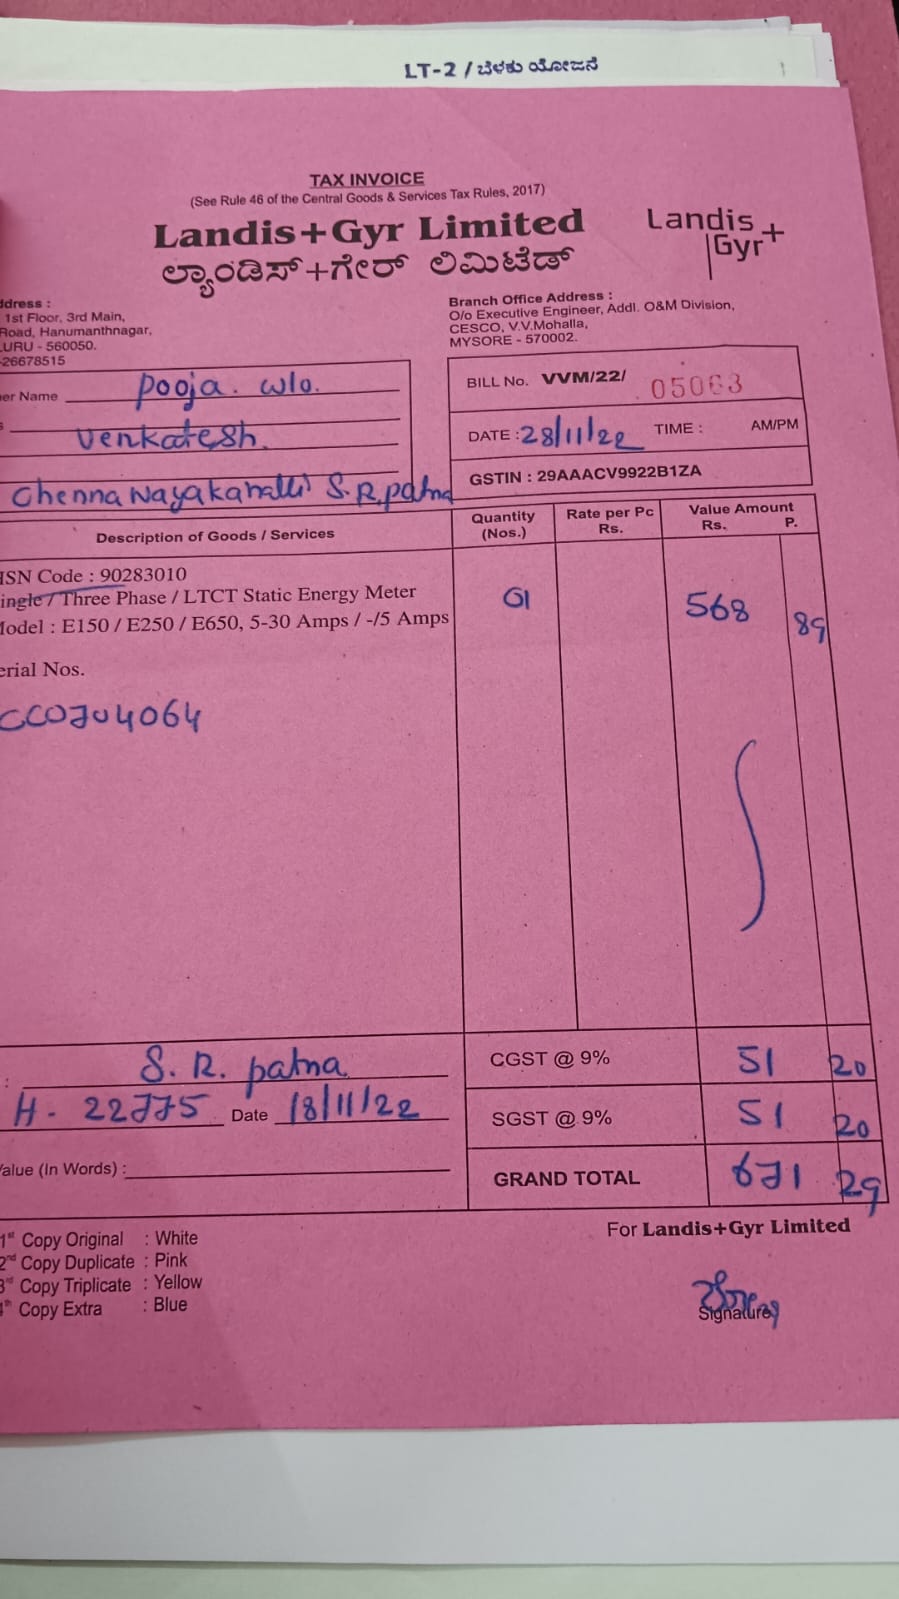 LT-2 / ಬೆಳಕು ಯೋಜನೆ
TAX INVOICE
(See Rule 46 of the Central Goods & Services Tax Rules, 2017)
Landis+Gyr Limited
ಲ್ಯಾಂಡಿಸ್+ಗೇರ್ ಲಿಮಿಟೆಡ್
Landis
Gyr+
ddress :
1st Floor, 3rd Main,
Road, Hanumanthnagar,
URU - 560050.
-26678515
Branch Office Address :
O/o Executive Engineer, Addl. O&M Division,
CESCO, V.V.Mohalla,
MYSORE - 570002.
er Name Pooja. W/o.
Venkatesh.
Chennanayakanalli S.R.patna
BILL No. VVM/22/ 05063
DATE : 28/11/22 TIME : AM/PM
GSTIN : 29AAACV9922B1ZA
Description of Goods / Services Quantity (Nos.) Rate per Pc Rs. Value Amount Rs. P.
HSN Code : 90283010
ingle / Three Phase / LTCT Static Energy Meter 01 568 89
Model : E150 / E250 / E650, 5-30 Amps / -/5 Amps
erial Nos.
: S. R. patna
H - 22775 Date 18/11/22
Value (In Words) :
CGST @ 9% 51 20
SGST @ 9% 51 20
GRAND TOTAL 671 29
1st Copy Original : White
2nd Copy Duplicate : Pink
3rd Copy Triplicate : Yellow
4th Copy Extra : Blue
For Landis+Gyr Limited
Signature